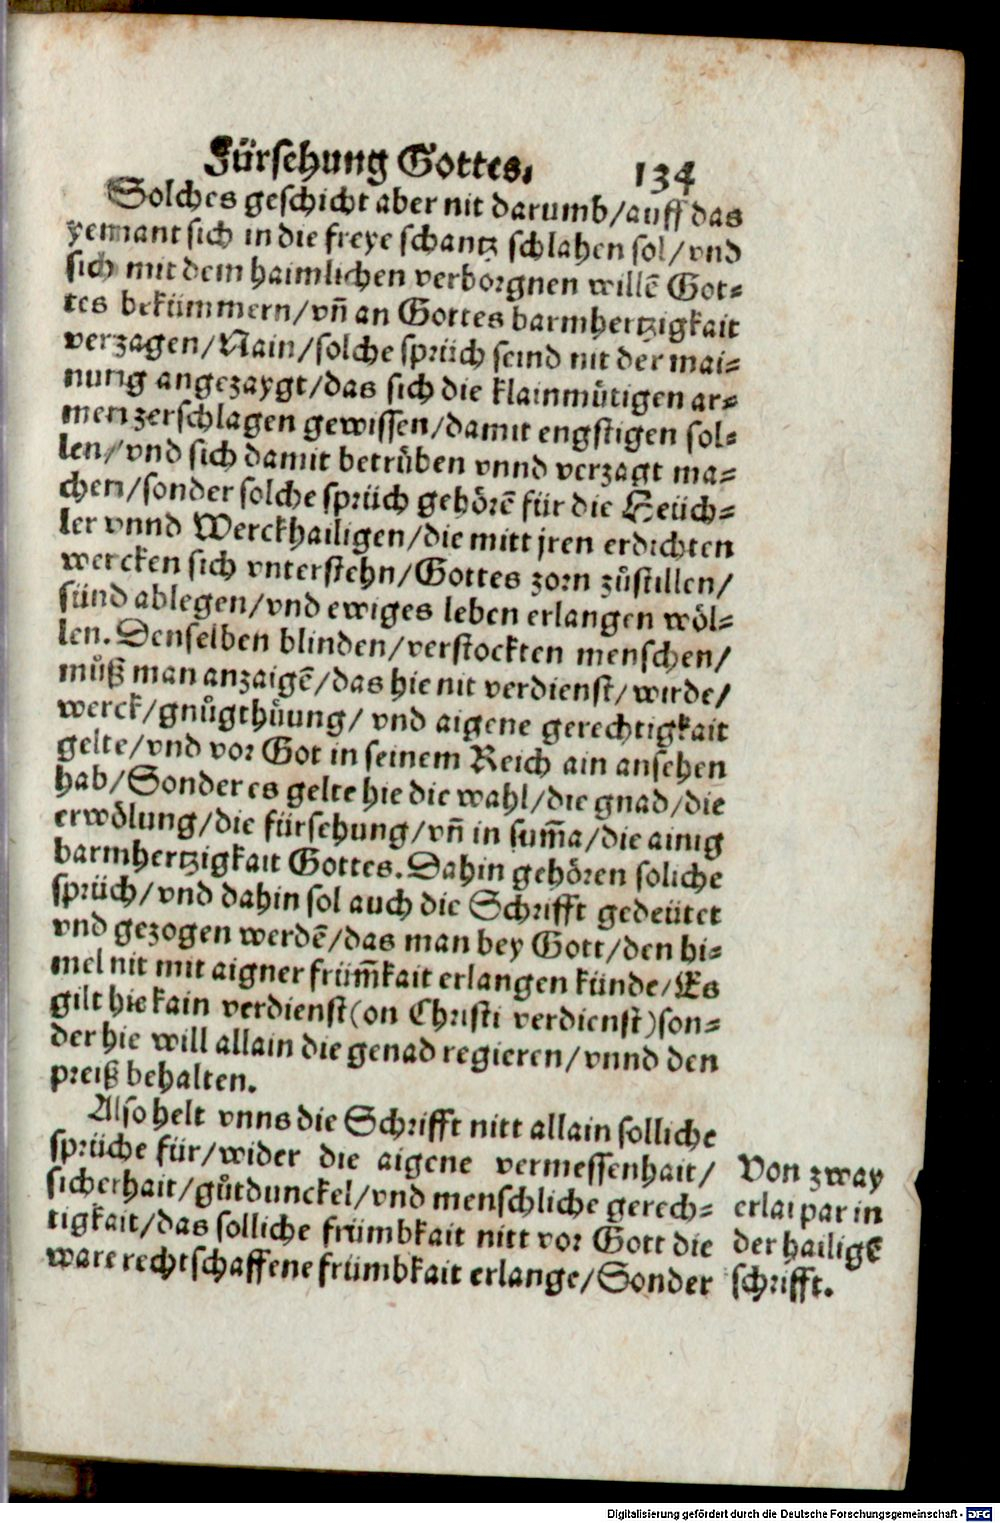 Fürsehung Gottes. 134
Solches geschicht aber nit darumb/auff das
yemant sich in die freye schantz schlahen sol/vnd
sich mit dem haimlichen verborgnen willē Got=
tes bekümmern/vñ an Gottes barmhertzigkait
verzagen/Nain/solche sprüch seind nit der mai=
nung angezaygt/das sich die klainmütigen ar=
men zerschlagen gewissen/damit engstigen sol=
len/vnd sich damit betrüben vnnd verzagt ma=
chen/sonder solche sprüch gehörē für die Heüch=
ler vnnd Werckhailigen/die mitt jren erdichten
wercken sich vnterstehn/Gottes zorn zůstillen/
sünd ablegen/vnd ewiges leben erlangen wöl=
len. Denselben blinden/verstockten menschen/
můß man anzaigē/das hie nit verdienst/wirde/
werck/gnůgthůung/ vnd aigene gerechtigkait
gelte/vnd vor Got in seinem Reich ain ansehen
hab/Sonder es gelte hie die wahl/die gnad/die
erwölung/die fürsehung/vñ in sum̄a/die ainig
barmhertzigkait Gottes. Dahin gehören soliche
sprüch/vnd dahin sol auch die Schrifft gedeütet
vnd gezogen werdē/das man bey Gott/den hi=
mel nit mit aigner früm̄kait erlangen künde/Es
gilt hie kain verdienst(on Christi verdienst)son=
der hie will allain die genad regieren/vnnd den
preiß behalten.
Also helt vnns die Schrifft nitt allain solliche
sprüche für/wider die aigene vermessenhait/
sicherhait/gůtdunckel/vnd menschliche gerech=
tigkait/das solliche frümbkait nitt vor Gott die
ware rechtschaffene frümbkait erlange/Sonder
Von zway
erlai par in
der hailigē
schrifft.
Digitalisierung gefördert durch die Deutsche Forschungsgemeinschaft - DFG